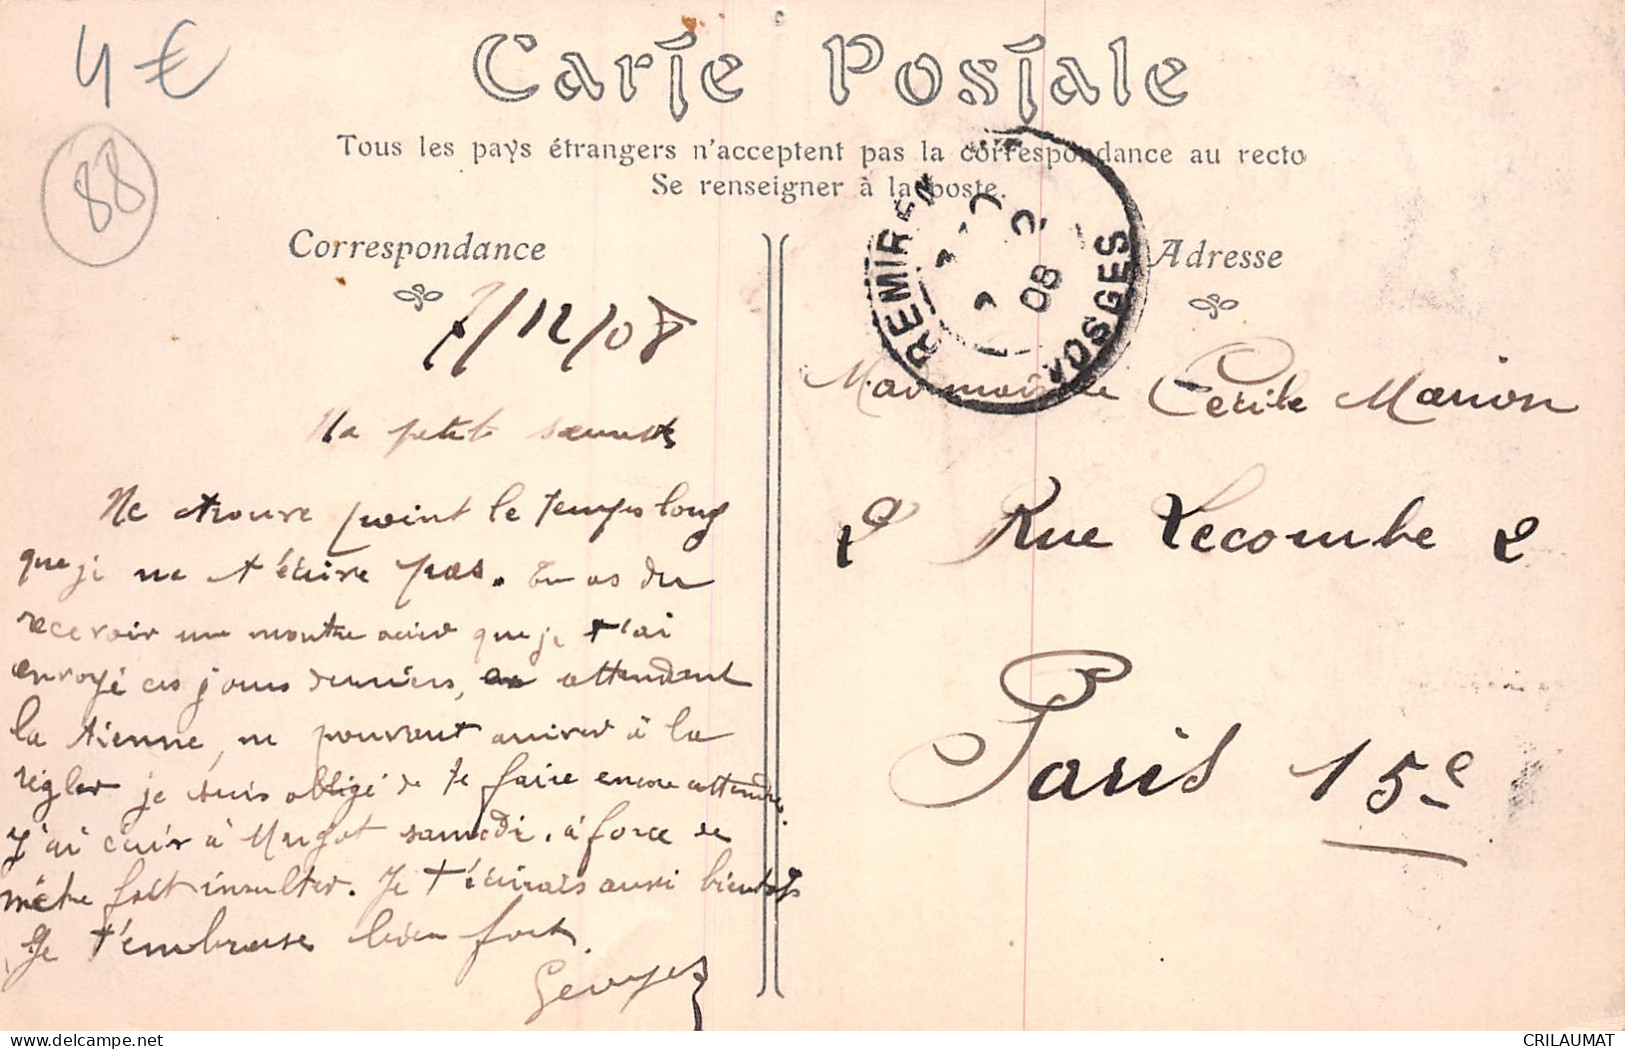 4 €
88
Carte Postale
Tous les pays étrangers n'acceptent pas la correspondance au recto
Se renseigner à la poste.
Correspondance
Adresse
REMIREM
VOSGES
08
7/12/08
Ma petite
Ne trouve point le temps long
que je ne t'écrive pas. Tu as du
recevoir une montre acier que je t'ai
envoyé ces jours derniers, en attendant
la tienne, ne pouvant arriver à la
régler je suis obligé de te faire encore attendre.
J'ai écrir à Margot samedi, à force de
m'être fait insulter. Je t'écrirais aussi bientôt
Je t'embrasse bien fort
Georges
Mademoiselle Cécile Marion
2 Rue Lecombe 2
Paris 15e
delcampe.net
CRILAUMAT